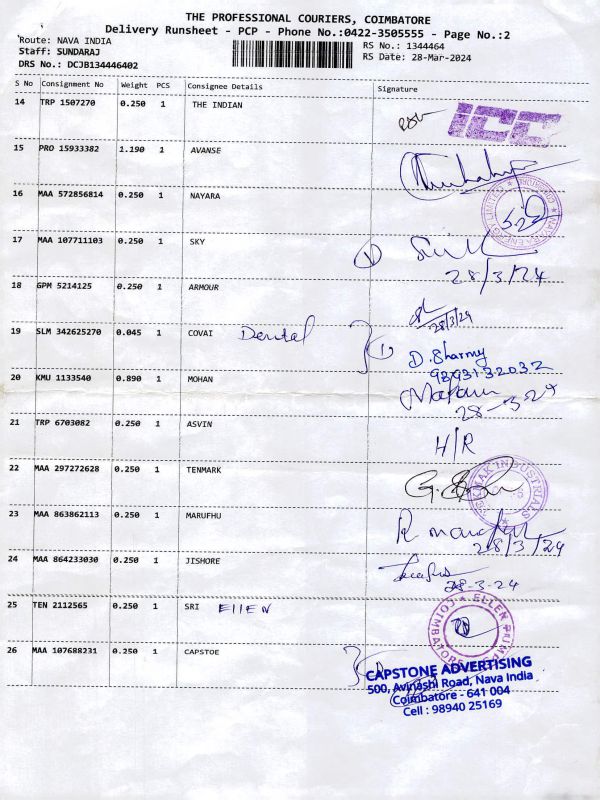 THE PROFESSIONAL COURIERS, COIMBATORE
Delivery Runsheet - PCP - Phone No.:0422-3505555 - Page No.:2
Route: NAVA INDIA
Staff: SUNDARAJ
DRS No.: DCJB134446402
RS No.: 1344464
RS Date: 28-Mar-2024
S No Consignment No Weight PCS Consignee Details Signature
14 TRP 1507270 0.250 1 THE INDIAN ICC
15 PRO 15933382 1.190 1 AVANSE
16 MAA 572856814 0.250 1 NAYARA
17 MAA 107711103 0.250 1 SKY
28/3/24
18 GPM 5214125 0.250 1 ARMOUR 28/3/24
19 SLM 342625270 0.045 1 COVAI Dental D. Sharmy
98931 32032
20 KMU 1133540 0.890 1 MOHAN
28-3-24
21 TRP 6703082 0.250 1 ASVIN H/R
22 MAA 297272628 0.250 1 TENMARK
23 MAA 863862113 0.250 1 MARUFHU
28/3/24
24 MAA 864233030 0.250 1 JISHORE
28-3-24
25 TEN 2112565 0.250 1 SRI Ellen
26 MAA 107688231 0.250 1 CAPSTOE
CAPSTONE ADVERTISING
500, Avinashi Road, Nava India
Coimbatore - 641 004
Cell : 98940 25169